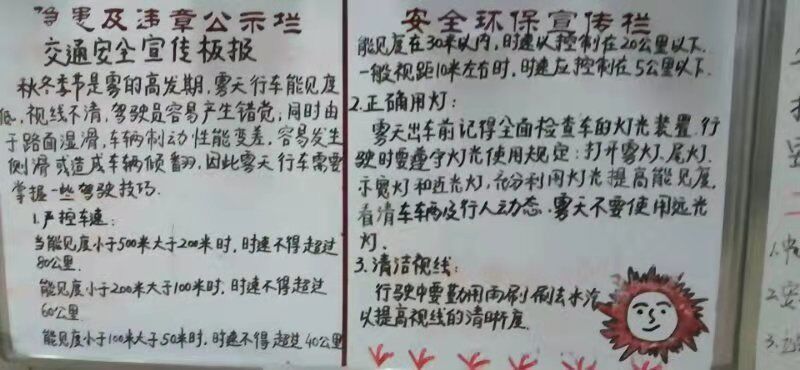 隐患及违章公示栏
交通安全宣传板报
秋冬季节是雾的高发期，雾天行车能见度
低，视线不清，驾驶员容易产生错觉；同时由
于路面湿滑，车辆制动性能变差，容易发生
侧滑或造成车辆倾翻，因此雾天行车需要
掌握一些驾驶技巧.
1.严控车速：
当能见度小于500米大于200米时，时速不得超过
80公里.
能见度小于200米大于100米时，时速不得超过
60公里.
能见度小于100米大于50米时，时速不得超过40公里
安全环保宣传栏
能见度在30米以内，时速以控制在20公里以下.
一般视距10米左右时，时速应控制在5公里以下.
2.正确用灯：
雾天出车前记得全面检查车的灯光装置.行
驶时要遵守灯光使用规定：打开雾灯、尾灯、
示宽灯和近光灯，充分利用大光提高能见度，
看清车车辆及行人动态.雾天不要使用远光
灯.
3.清洁视线：
行驶中要勤用雨刷刷去水汽
以提高视线的清晰度.